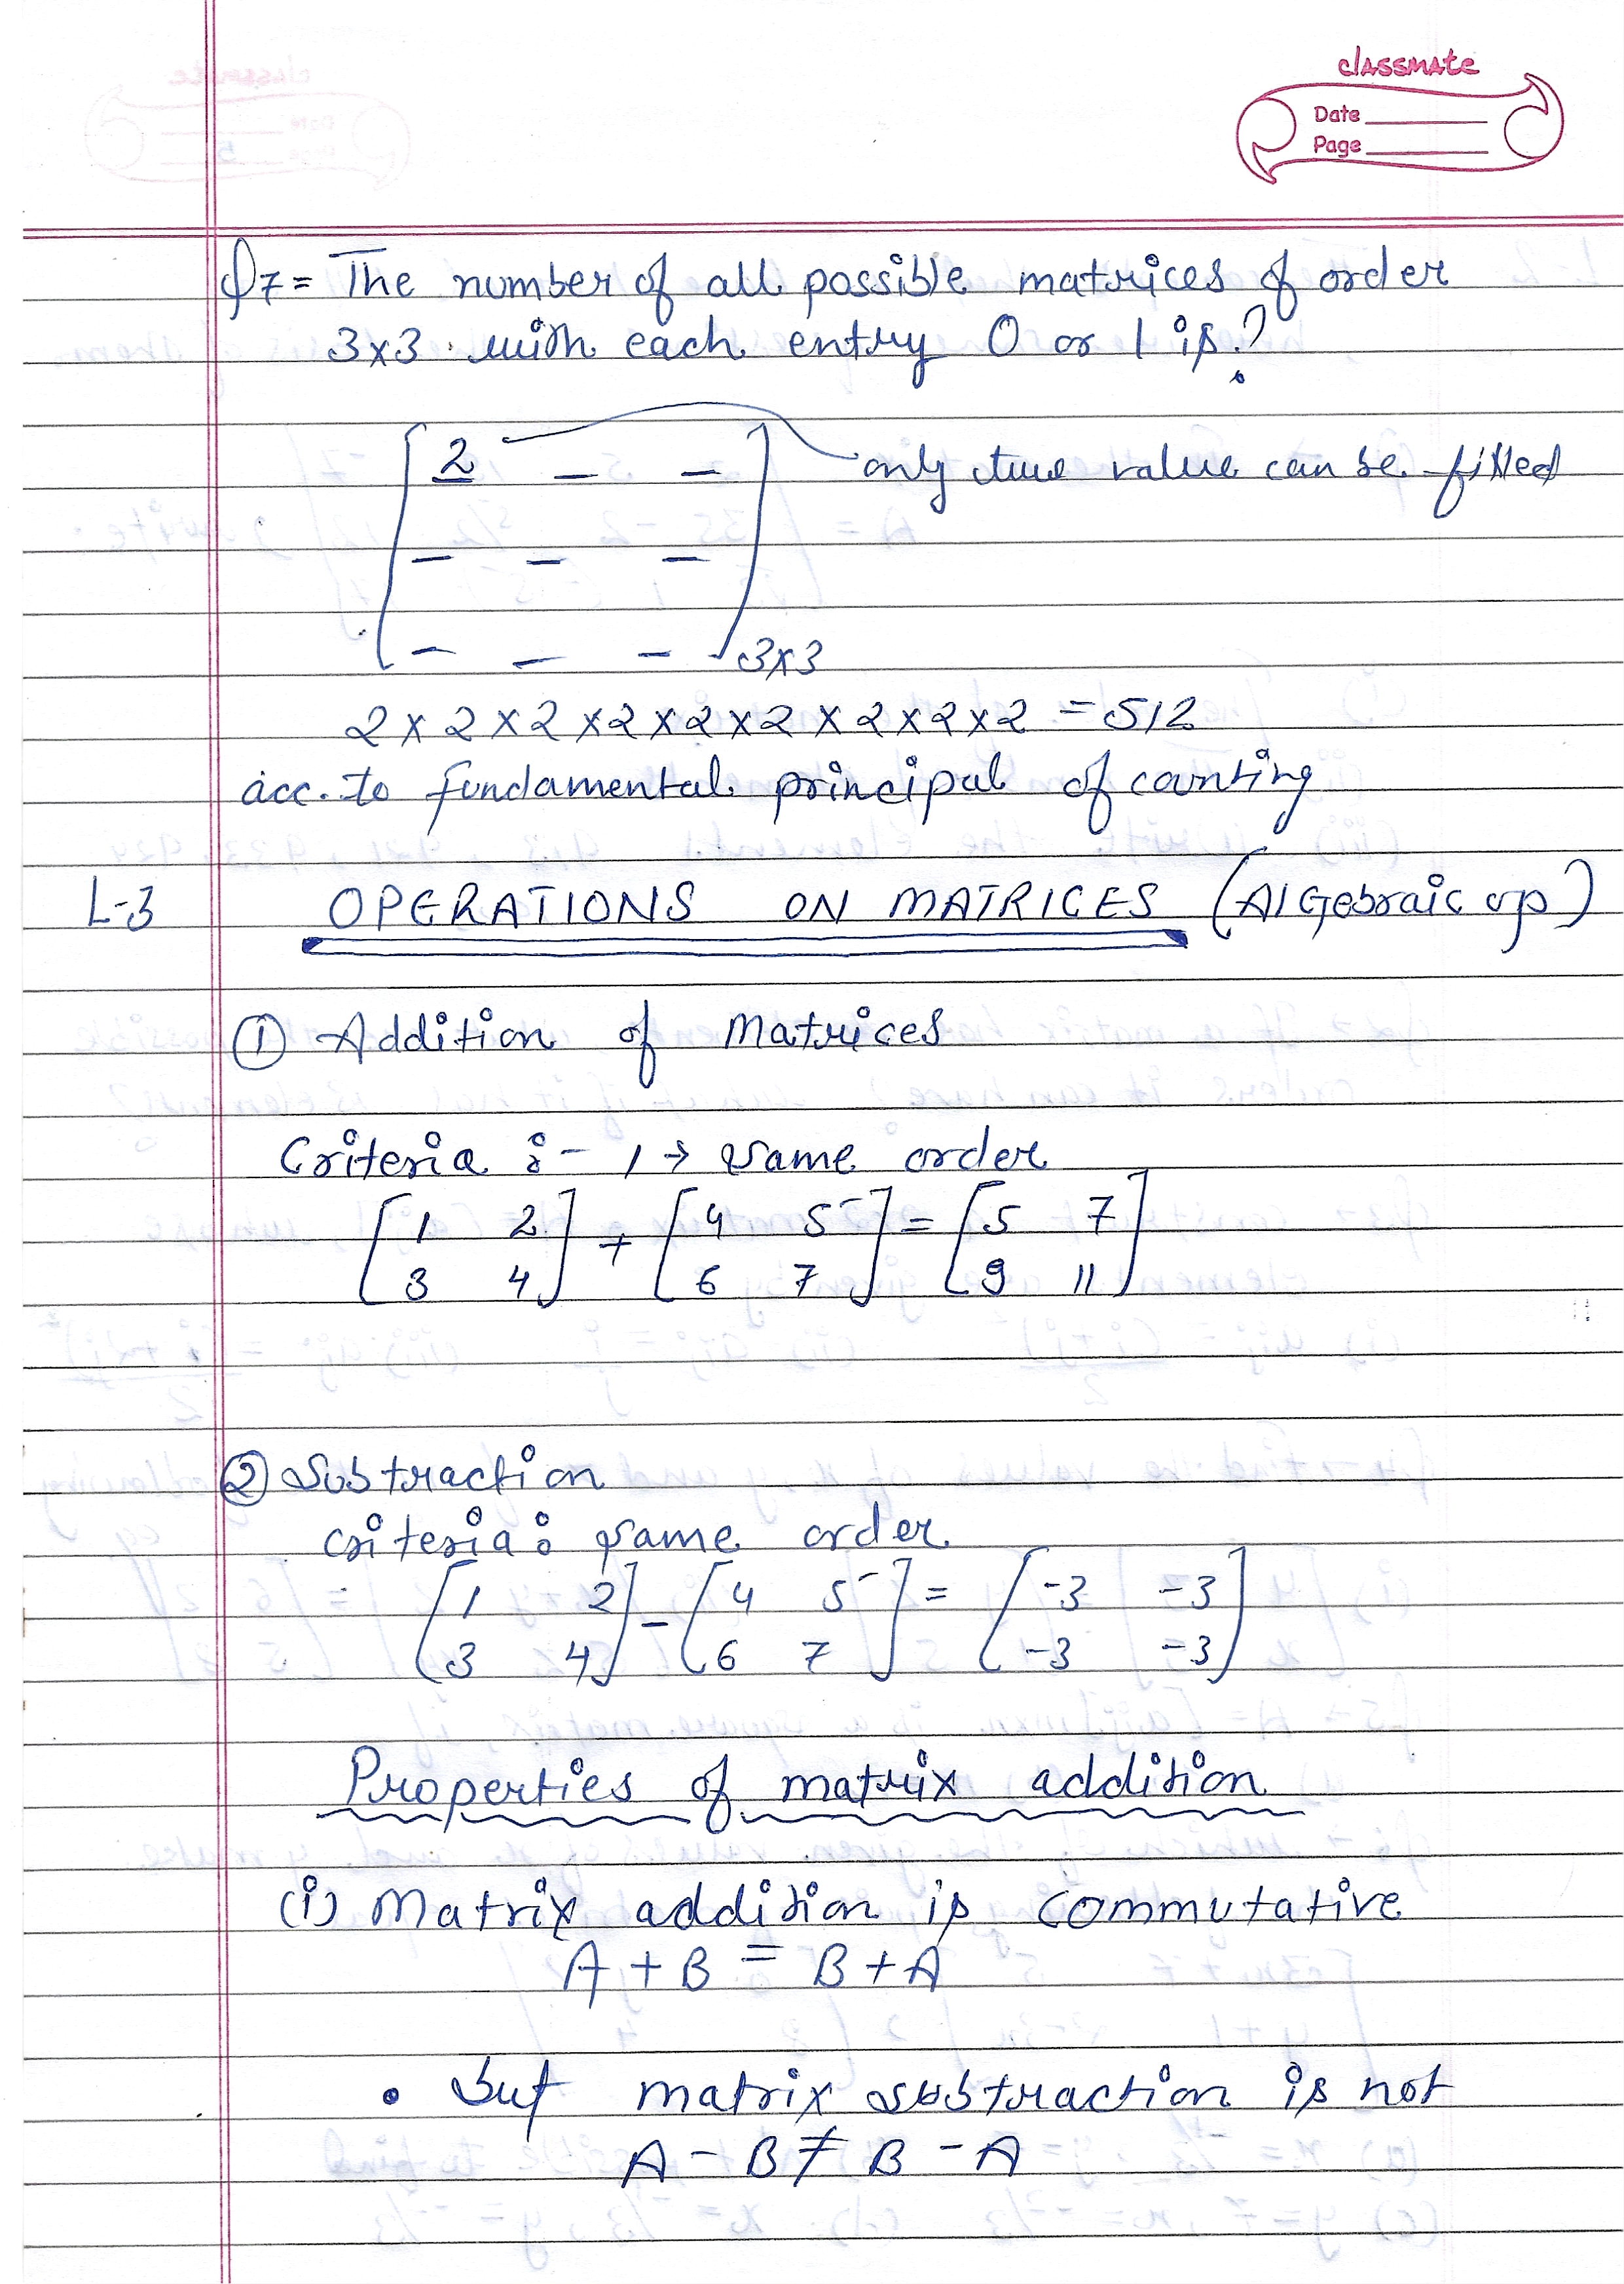 classmate
Date
Page
Q7= The number of all possible matrices of order
3x3 with each entry 0 or 1 is?
[2 _ _] only two value can be filled
_ _ _
_ _ _ 3x3
2 x 2 x 2 x 2 x 2 x 2 x 2 x 2 x 2 = 512
acc. to fundamental principal of counting
L-3 OPERATIONS ON MATRICES (AlGebraic op)
① Addition of Matrices
Criteria :- 1 → same order
[1 2] + [4 5] = [5 7]
[3 4] [6 7] [9 11]
② Subtraction
criteria: same order
= [1 2] - [4 5] = [-3 -3]
[3 4] [6 7] [-3 -3]
Properties of matrix addition
(i) Matrix addition is commutative
A + B = B + A
• but matrix subtraction is not
A - B ≠ B - A